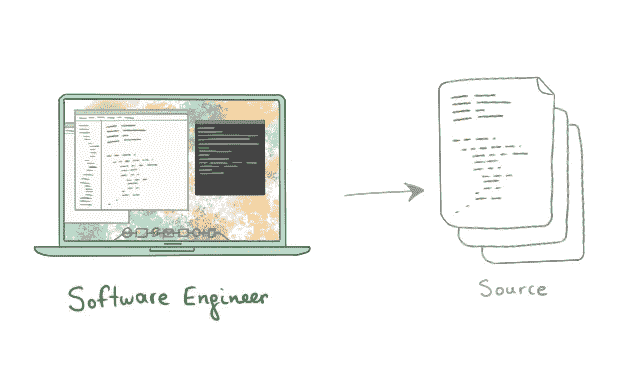 Software Engineer
Source